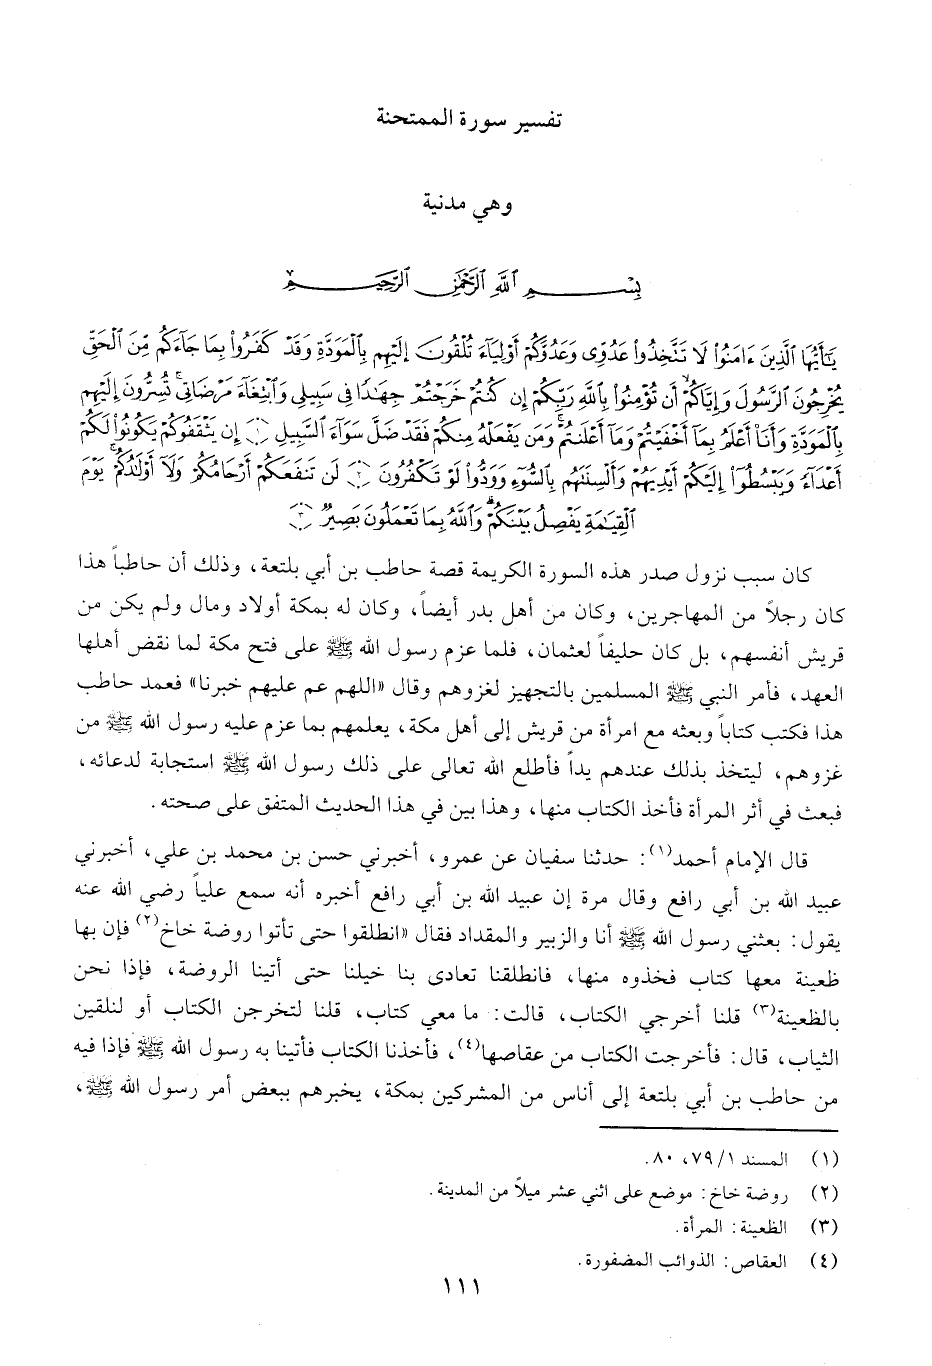 تفسير سورة الممتحنة
وهي مدنية
بِسْمِ ٱللَّهِ ٱلرَّحْمَٰنِ ٱلرَّحِيمِ
يَٰٓأَيُّهَا ٱلَّذِينَ ءَامَنُوا۟ لَا تَتَّخِذُوا۟ عَدُوِّى وَعَدُوَّكُمْ أَوْلِيَآءَ تُلْقُونَ إِلَيْهِم بِٱلْمَوَدَّةِ وَقَدْ كَفَرُوا۟ بِمَا جَآءَكُم مِّنَ ٱلْحَقِّ
يُخْرِجُونَ ٱلرَّسُولَ وَإِيَّاكُمْ ۙ أَن تُؤْمِنُوا۟ بِٱللَّهِ رَبِّكُمْ إِن كُنتُمْ خَرَجْتُمْ جِهَٰدًا فِى سَبِيلِى وَٱبْتِغَآءَ مَرْضَاتِى ۚ تُسِرُّونَ إِلَيْهِم
بِٱلْمَوَدَّةِ وَأَنَا۠ أَعْلَمُ بِمَآ أَخْفَيْتُمْ وَمَآ أَعْلَنتُمْ ۚ وَمَن يَفْعَلْهُ مِنكُمْ فَقَدْ ضَلَّ سَوَآءَ ٱلسَّبِيلِ ﴿١﴾ إِن يَثْقَفُوكُمْ يَكُونُوا۟ لَكُمْ
أَعْدَآءً وَيَبْسُطُوٓا۟ إِلَيْكُمْ أَيْدِيَهُمْ وَأَلْسِنَتَهُم بِٱلسُّوٓءِ وَوَدُّوا۟ لَوْ تَكْفُرُونَ ﴿٢﴾ لَن تَنفَعَكُمْ أَرْحَامُكُمْ وَلَآ أَوْلَٰدُكُمْ ۚ يَوْمَ
ٱلْقِيَٰمَةِ يَفْصِلُ بَيْنَكُمْ ۚ وَٱللَّهُ بِمَا تَعْمَلُونَ بَصِيرٌ ﴿٣﴾
كان سبب نزول صدر هذه السورة الكريمة قصة حاطب بن أبي بلتعة، وذلك أن حاطباً هذا
كان رجلاً من المهاجرين، وكان من أهل بدر أيضاً، وكان له بمكة أولاد ومال ولم يكن من
قريش أنفسهم، بل كان حليفاً لعثمان، فلما عزم رسول الله ﷺ على فتح مكة لما نقض أهلها
العهد، فأمر النبي ﷺ المسلمين بالتجهيز لغزوهم وقال «اللهم عم عليهم خبرنا» فعمد حاطب
هذا فكتب كتاباً وبعثه مع امرأة من قريش إلى أهل مكة، يعلمهم بما عزم عليه رسول الله ﷺ من
غزوهم، ليتخذ بذلك عندهم يداً فأطلع الله تعالى على ذلك رسول الله ﷺ استجابة لدعائه،
فبعث في أثر المرأة فأخذ الكتاب منها، وهذا بين في هذا الحديث المتفق على صحته.
قال الإمام أحمد(١): حدثنا سفيان عن عمرو، أخبرني حسن بن محمد بن علي، أخبرني
عبيد الله بن أبي رافع وقال مرة إن عبيد الله بن أبي رافع أخبره أنه سمع علياً رضي الله عنه
يقول: بعثني رسول الله ﷺ أنا والزبير والمقداد فقال «انطلقوا حتى تأتوا روضة خاخ(٢) فإن بها
ظعينة معها كتاب فخذوه منها، فانطلقنا تعادى بنا خيلنا حتى أتينا الروضة، فإذا نحن
بالظعينة(٣) قلنا أخرجي الكتاب، قالت: ما معي كتاب، قلنا لتخرجن الكتاب أو لنلقين
الثياب، قال: فأخرجت الكتاب من عقاصها(٤)، فأخذنا الكتاب فأتينا به رسول الله ﷺ فإذا فيه
من حاطب بن أبي بلتعة إلى أناس من المشركين بمكة، يخبرهم ببعض أمر رسول الله ﷺ،
(١) المسند ١/ ٧٩، ٨٠.
(٢) روضة خاخ: موضع على اثني عشر ميلاً من المدينة.
(٣) الظعينة: المرأة.
(٤) العقاص: الذوائب المضفورة.
١١١